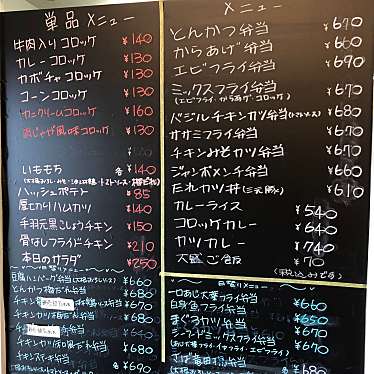 単品メニュー
牛肉入りコロッケ ¥140
カレーコロッケ ¥130
カボチャコロッケ ¥130
コーンコロッケ ¥130
カニクリームコロッケ ¥160
おじゃが風味コロッケ ¥130
いももち 各¥140
ハッシュポテト ¥85
厚切りハムカツ ¥140
手羽元黒こしょうチキン ¥150
骨なしフライドチキン ¥210
本日のサラダ ¥250
日替りメニュー
豆腐ハンバーグ弁当 ¥660
とんかつ梅だれ弁当 ¥680
チキン ¥680
チキンカツ ¥640
チキンカツ 弁当 ¥640
チキンカツ 弁当 ¥660
チキンステーキ弁当 ¥660
¥670
メニュー
とんかつ弁当 ¥670
からあげ弁当 ¥660
エビフライ弁当 ¥690
ミックスフライ弁当 ¥670
(エビフライ からあげ コロッケ)
バジルチキンカツ弁当 ¥680
ササミフライ弁当 ¥670
チキンみそカツ弁当 ¥680
ジャンボメンチ弁当 ¥660
たれカツ丼 ¥610
カレーライス ¥540
コロッケカレー ¥640
カツカレー ¥740
大盛ご飯 ¥70
(税込)
日替りメニュー
白身魚フライ弁当 ¥660
まぐろカツ弁当 ¥650
シーフードミックスフライ弁当 ¥670
さば 弁当 ¥660